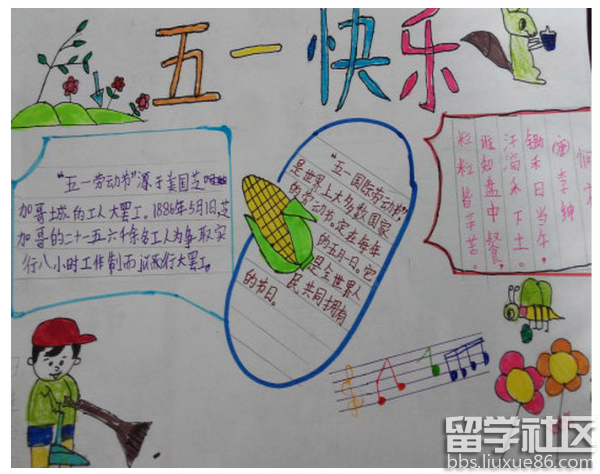 五一快乐
"五一劳动节"源于美国芝
加哥城的工人大罢工。1886年5月1日,芝
加哥的二十一万六千余名工人为争取实
行八小时工作制而行大罢工。
"五一国际劳动节"
是世界上大多数国家
的劳动节。定在每年
的五月一日。它
是全世界人
民共同拥有
的节日。
李绅
锄禾日当午。
汗滴禾下土。
谁知盘中餐。
粒粒皆辛苦。
留学社区
bbs.liuxue86.com